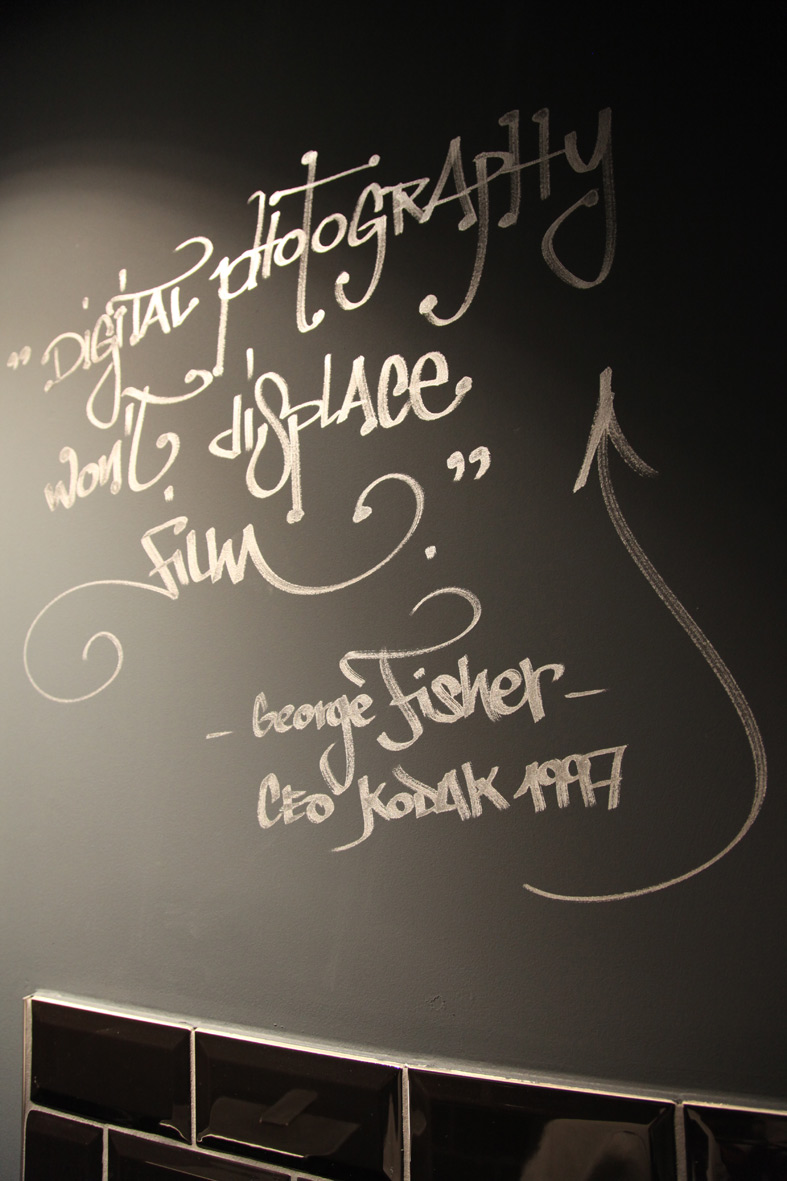 "DIGITAL PHOTOGRAPHY
WON'T DISPLACE
FILM."
- George Fisher -
CEO KODAK 1997